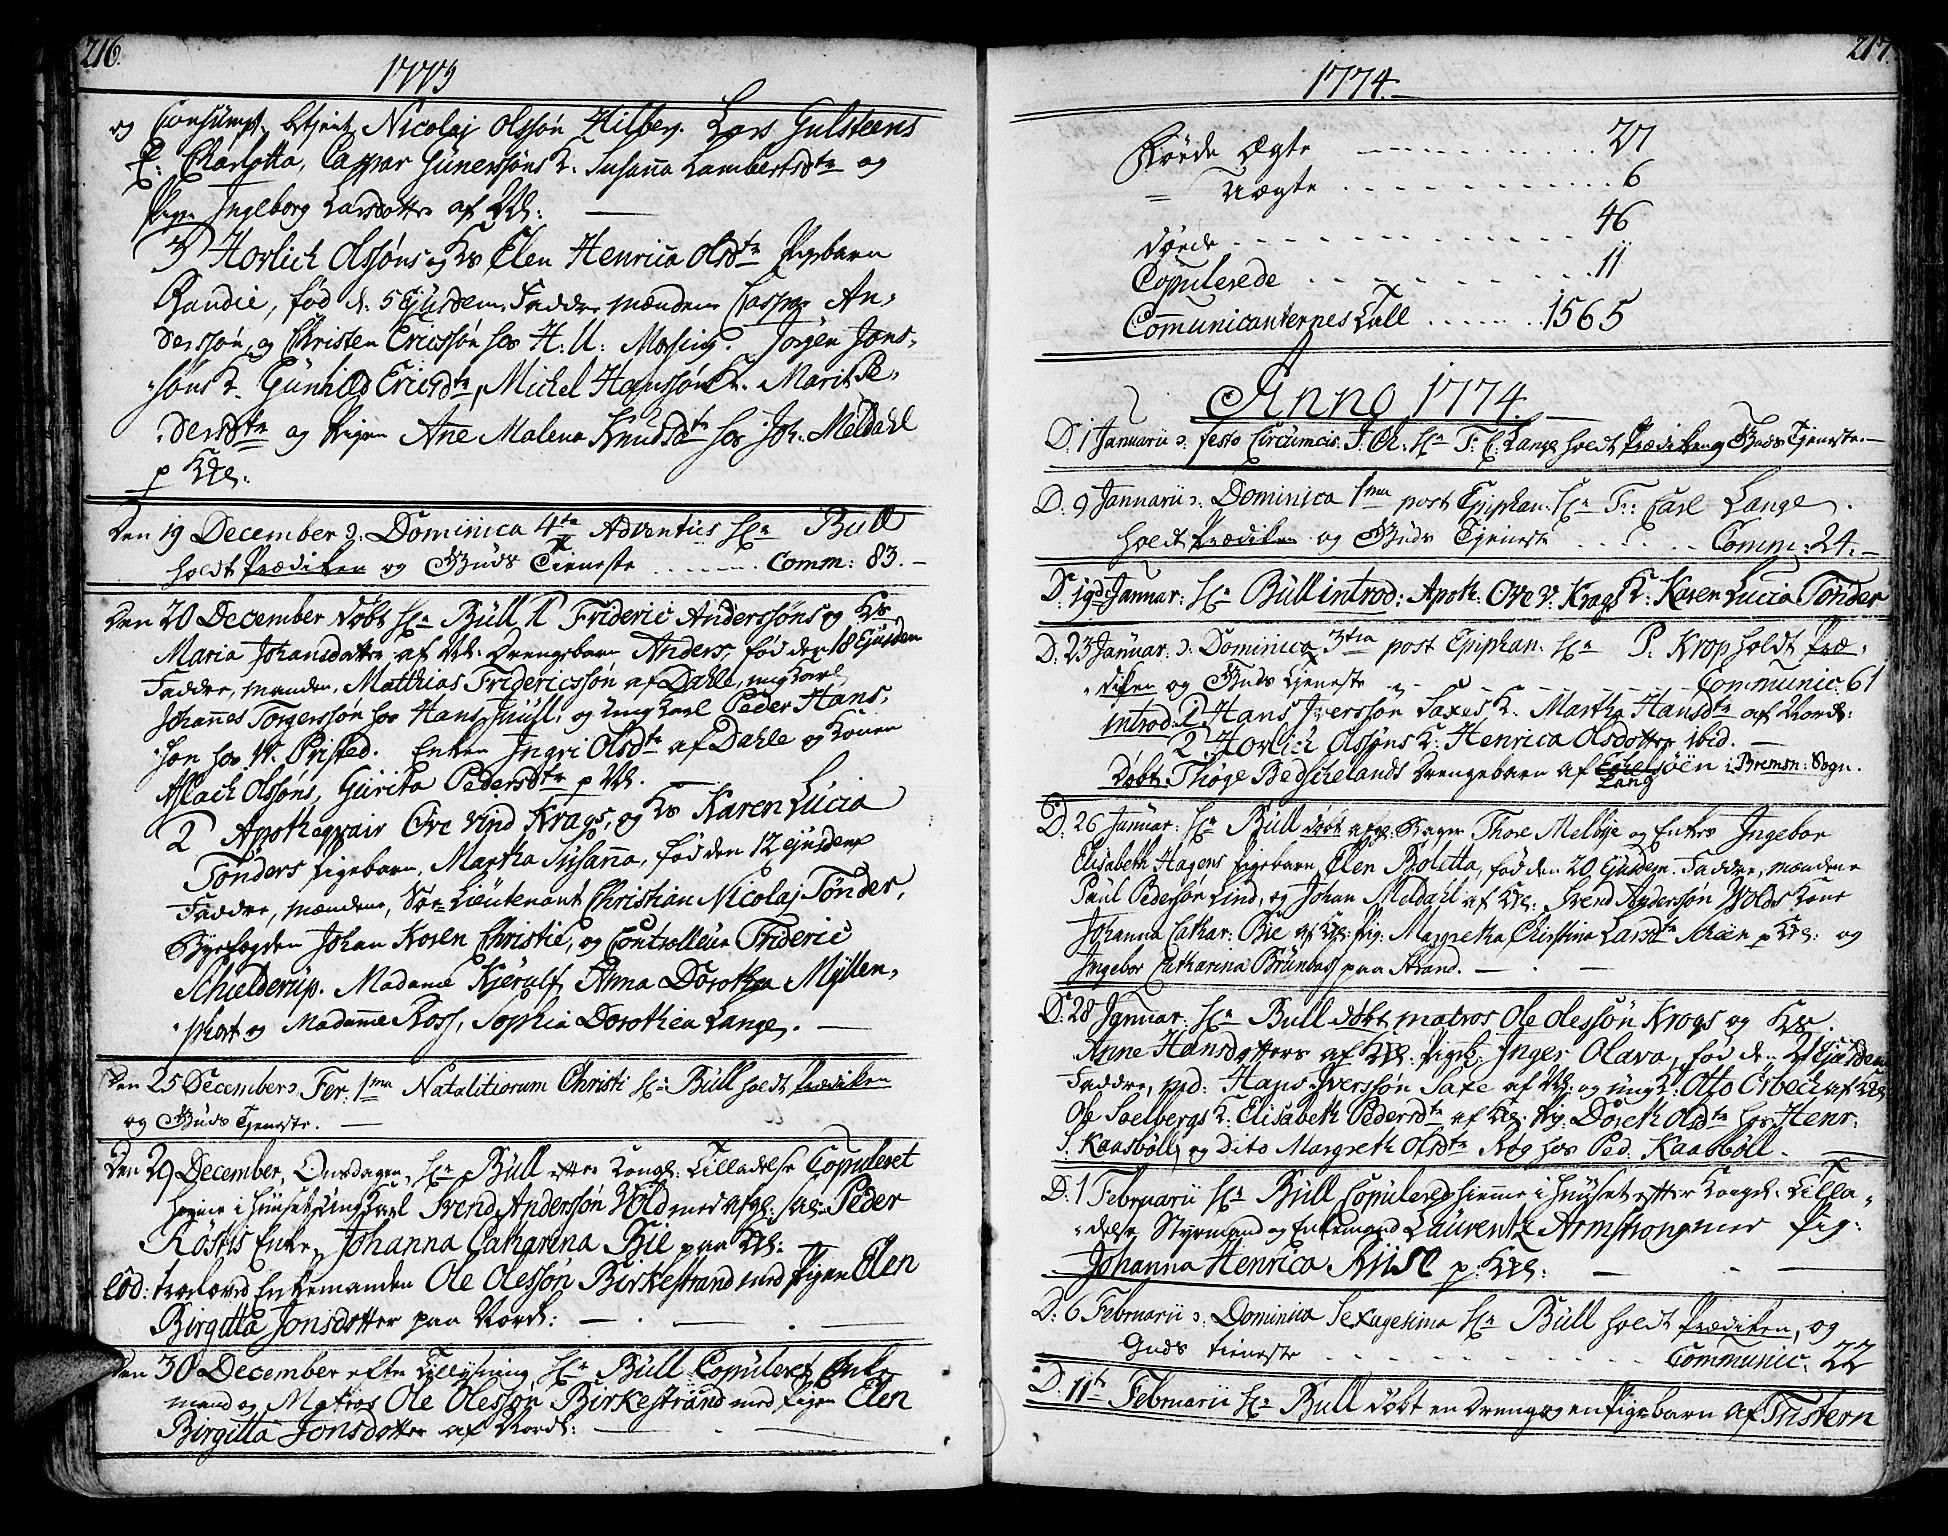 216.
1773
og Consumpt. betjent Nicolaj Olssøn Hilberg. Lars Gulsteens
E: Charlotta, Caspar Gunerssøns K. Susanna Lambertsdtr og
Pigen Ingeborg Larsdotter af Ndl:
3 Horlich Olssøns og Ks Elen Henrica Olsdtr Pigebarn
Randie, fød d. 5 Ejusdem. Faddre, mændene Caspar An-
derssøn, og Christen Ericssøn hos H: U: Morsing. Jörgen Jons-
søns K. Gunild Ericsdtr, Michel Hanssøns K. Marit Pe-
dersdtr og Pigen Ane Malena Knudsdtr hos Joh. Meldahl
p Kdl:
Den 19 December ɔ: Dominica 4ta Adventus Hr Bull
holdt Prædiken og Guds Tieneste ........ Comm: 83. —
Den 20 December døbt Hr Büll 1 Frideric Anderssøns og Ks
Maria Johansdotter af Ndl: Drengebarn Anders, fød den 18 Ejusdem
Faddre, manden, Matthias Fridericssøn af Dahle, ungkarl
Johannes Torgerssøn hos Hans Juull, og ungkarl Peder Hans-
søn hos W. Pristed. Enken Ingri Olsdtr af Dahle og Konen
Aslach Olssøns, Gurita Pedersdtr p Ndl. —
2 Apothequair Ove Vind Krags, og Ks Karen Lucia
Tönders Pigebarn, Martha Susanna, fød den 12 ejusdem
Faddre, mændene, Sør-Lieutenant Christian Nicolaj Tönder,
Byefogden Johan Koren Christie, og Controlleur Frideric
Schielderup. Madame Kjerulf, Anna Dorothea Myllen-
phort og Madamme Ross, Sophia Dorothea Lange. —
Den 25 December ɔ. Fer. 1ma Natalitiorum Christi Hr Büll holdt Prædiken
og Guds Tjeneste. —
Den 29 December, Onsdagen, Hr Büll efter Kongl: Tilladelse Copuleret
hjeme i Huuset ungkarl Svend Anderssøn Vold med afgl: Sal: Peder
Röstis Enke, Johanna Catharina Bie paa Kdl:
eod: trolovd Enkemanden Ole Olessøn Birkestrand med Pigen Elen
Birgitta Jonsdotter paa Nordl: — . — . —
Den 30 December efter Tillysning Hr Büll Copuleret Enke-
mand og Matros Ole Olessøn Birkestrand med Pigen Elen
Birgitta Jonsdotter af Nordl:
217.
1774.
Fødde Ægte ........ 27
= Uægte ........ 6
Døde ........ 46
Copulerede ........ 11
Communicanternes Tall ........ 1565
Anno 1774.
D. 1 Januarii ɔ. festo Circumcis: J. Ch: Hr F: C. Lange holdt Prædiken og Guds Tjeneste. —
D. 9 Januarii ɔ. Dominica 1ma post Epiphan. Hr Fr: Carl Lange
holdt Prædiken og Guds Tjeneste ..... Comm: 24. —
D. 19d: Januar: Hr Büll introd: Apoth. Ove V. Krags K: Karen Lucia Tönder
D. 23 Januar: ɔ. Dominica 3tia post Epiphan. Hr P. Krop holdt Præ-
diken og Guds Tjeneste ........ Communic. 61
introd. 1. Hans Iverssøn Saxes K. Martha Hansdtr af Nordl:
2. Horlich Olssøns K. Henrica Olsdotter ibid. —
Døbt Thöge Bedschelands Drengebarn af Lang i Bremsn: Sogn.
D. 26 Januar: Hr Büll døbt afgl: Bager Thore Melbye og Enkes Ingebor
Elisabeth Hagens Pigebarn, Elen Boletta, fød den 20 Ejusdem. Faddre, mændene
Paul Pedersøn Lind, og Johan Meldahl af Kdl: Svend Anderssøn Wolds Kone
Johanna Cathar: Bie af Kdl: Pig: Margretha Christina Larsdtr Schien p Kdl: og
Ingebor Catharina Brünbas paa Strand. — . —
D: 28 Januar: Hr Bull døbt matros Ole Olessøn Krogs og Ks.
Anne Hansdotters af Kdl. Pigeb: Inger Olava, fød den 21 Ejusdem
Faddre, md: Hans Iverssøn Saxe af Ndl: og ungk: Otto Örbech af Kdl.
Ole Soelbergs K: Elisabeth Pedersdtr af Kdl. Pig: Doreth Olsdtr hos Henr:
S. Kaasböll, og Dito Margreth Olsdtr Røg hos Ped. Kaasböll. —
D: 1 Februarii Hr Büll Copulered hieme i Huuset efter Kongl. Tilla-
delse Styrmand og Enkemand Laurentz Armstrong med Pig:
Johanna Henrica Riise p. Kdl: — . —
D: 6 Februarii ɔ. Dominica Sexagesima Hr Büll holdt Prædiken, og
Guds tieneste ........ Communic: 22
D. 11te Februarii Hr Büll døbt en Dreng og en Pigebarn af Tustern